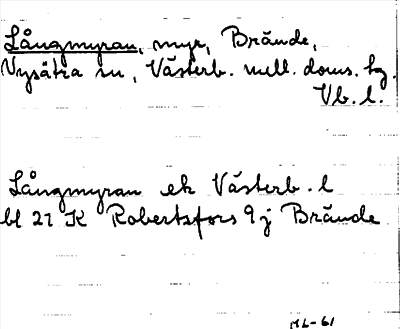 Långmyran, myr, Brände,
Nysätra sn, Västerb. mell. doms. tg.
Vb. l.
Långmyran ek Västerb. l
bl 21 K Robertsfors 9 j Brände
M6-61